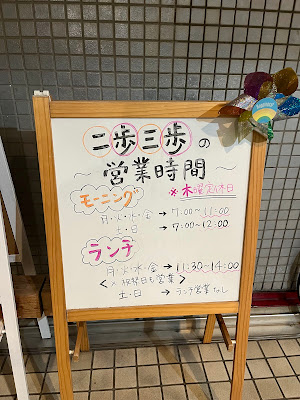 二歩三歩の
~営業時間~
モーニング ※木曜定休日
月・火・水・金 → 7:00~11:00
土・日 → 7:00~12:00
ランチ
月・火・水・金 → 11:30~14:00
祝祭日も営業
土・日 → ランチ営業なし